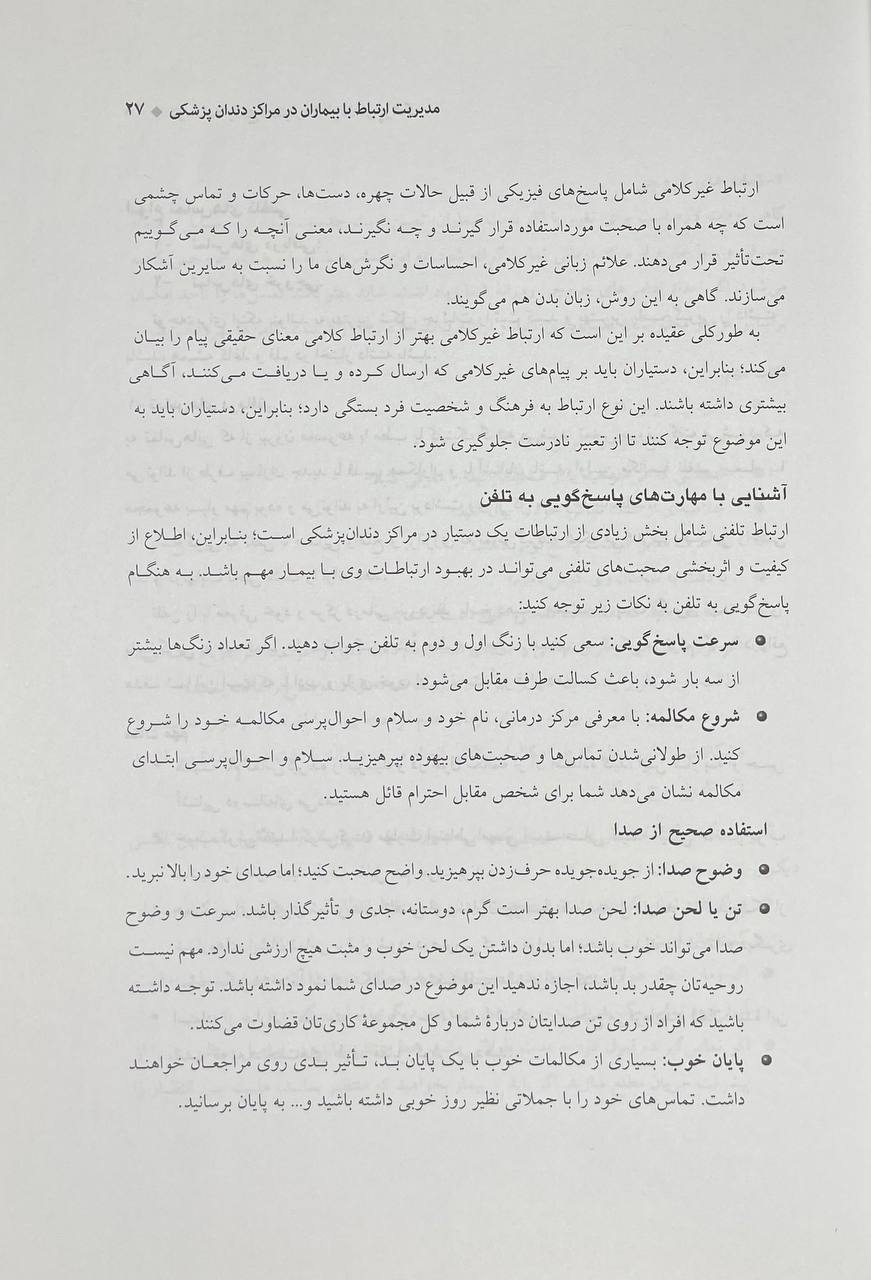 مدیریت ارتباط با بیماران در مراکز دندان پزشکی ◆ ۲۷
ارتباط غیرکلامی شامل پاسخ‌های فیزیکی از قبیل حالات چهره، دست‌ها، حرکات و تماس چشمی
است که چه همراه با صحبت مورداستفاده قرار گیرند و چه نگیرند، معنی آنچه را که می‌گوییم
تحت‌تأثیر قرار می‌دهند. علائم زبانی غیرکلامی، احساسات و نگرش‌های ما را نسبت به سایرین آشکار
می‌سازند. گاهی به این روش، زبان بدن هم می‌گویند.
به طورکلی عقیده بر این است که ارتباط غیرکلامی بهتر از ارتباط کلامی معنای حقیقی پیام را بیان
می‌کند؛ بنابراین، دستیاران باید بر پیام‌های غیرکلامی که ارسال کرده و یا دریافت می‌کنند، آگاهی
بیشتری داشته باشند. این نوع ارتباط به فرهنگ و شخصیت فرد بستگی دارد؛ بنابراین، دستیاران باید به
این موضوع توجه کنند تا از تعبیر نادرست جلوگیری شود.
آشنایی با مهارت‌های پاسخ‌گویی به تلفن
ارتباط تلفنی شامل بخش زیادی از ارتباطات یک دستیار در مراکز دندان‌پزشکی است؛ بنابراین، اطلاع از
کیفیت و اثربخشی صحبت‌های تلفنی می‌تواند در بهبود ارتباطات وی با بیمار مهم باشد. به هنگام
پاسخ‌گویی به تلفن به نکات زیر توجه کنید:
● سرعت پاسخ‌گویی: سعی کنید با زنگ اول و دوم به تلفن جواب دهید. اگر تعداد زنگ‌ها بیشتر
از سه بار شود، باعث کسالت طرف مقابل می‌شود.
● شروع مکالمه: با معرفی مرکز درمانی، نام خود و سلام و احوال‌پرسی مکالمه خود را شروع
کنید. از طولانی‌شدن تماس‌ها و صحبت‌های بیهوده بپرهیزید. سلام و احوال‌پرسی ابتدای
مکالمه نشان می‌دهد شما برای شخص مقابل احترام قائل هستید.
استفاده صحیح از صدا
● وضوح صدا: از جویده‌جویده حرف‌زدن بپرهیزید. واضح صحبت کنید؛ اما صدای خود را بالا نبرید.
● تن یا لحن صدا: لحن صدا بهتر است گرم، دوستانه، جدی و تأثیرگذار باشد. سرعت و وضوح
صدا می‌تواند خوب باشد؛ اما بدون داشتن یک لحن خوب و مثبت هیچ ارزشی ندارد. مهم نیست
روحیه‌تان چقدر بد باشد، اجازه ندهید این موضوع در صدای شما نمود داشته باشد. توجه داشته
باشید که افراد از روی تن صدایتان دربارهٔ شما و کل مجموعهٔ کاری‌تان قضاوت می‌کنند.
● پایان خوب: بسیاری از مکالمات خوب با یک پایان بد، تأثیر بدی روی مراجعان خواهند
داشت. تماس‌های خود را با جملاتی نظیر روز خوبی داشته باشید و... به پایان برسانید.